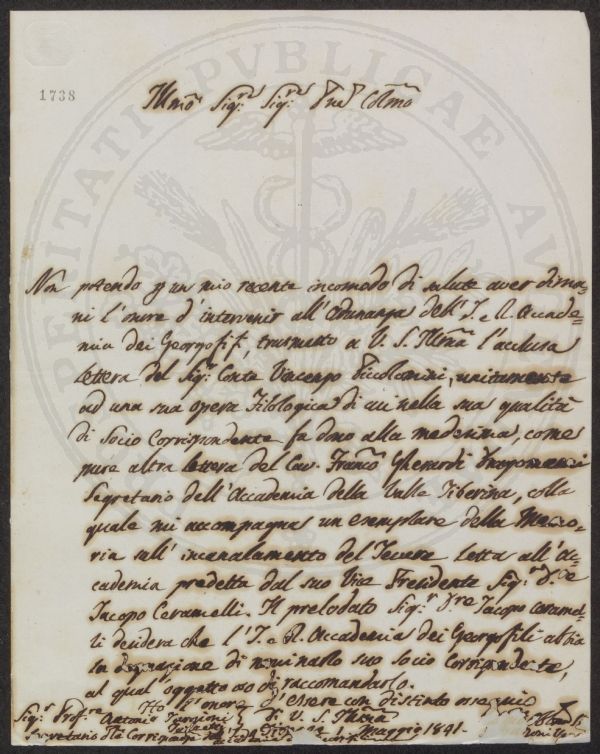 PROSPERITATI PVBLICAE AVGENDAE
1738
Illmo Sigr. Sigr. Prne Colmo
Non potendo p un mio recente incomodo di salute aver dima-
ni l'onore d'intervenir all'Adunanza dell'I. e R. Accade-
mia dei Georgofili, trasmetto a V. S. Illma l'acclusa
lettera del Sigr. Conte Vincenzo Piccolomini, unitamente
ad una sua opera Filologica di cui nella sua qualità
di Socio Corrispondente fa dono alla medesima, come
pure altra lettera del Cav. Franco Gherardi Dragomanni
Segretario dell'Accademia della Valle Tiberina, colla
quale mi accompagna un esemplare della Memo-
ria sull'incanalamento del Tevere letta all'Ac-
cademia predetta dal suo Vice Presidente Sigr. Dre
Jacopo Ceramelli. Il prelodato Sigr. Dre Jacopo Ceramel-
li desidera che l'I. e R. Accademia dei Georgofili abbia
la degnazione di nominarlo suo Socio Corrispondente,
al qual'oggetto oso di raccomandarlo.
Ho l'onore d'essere con distinto ossequio
Sigr. Profre Antonio Targioni Tozzetti
Di V. S. Illma
Segretario Corrispondenze
Maggio 1841.